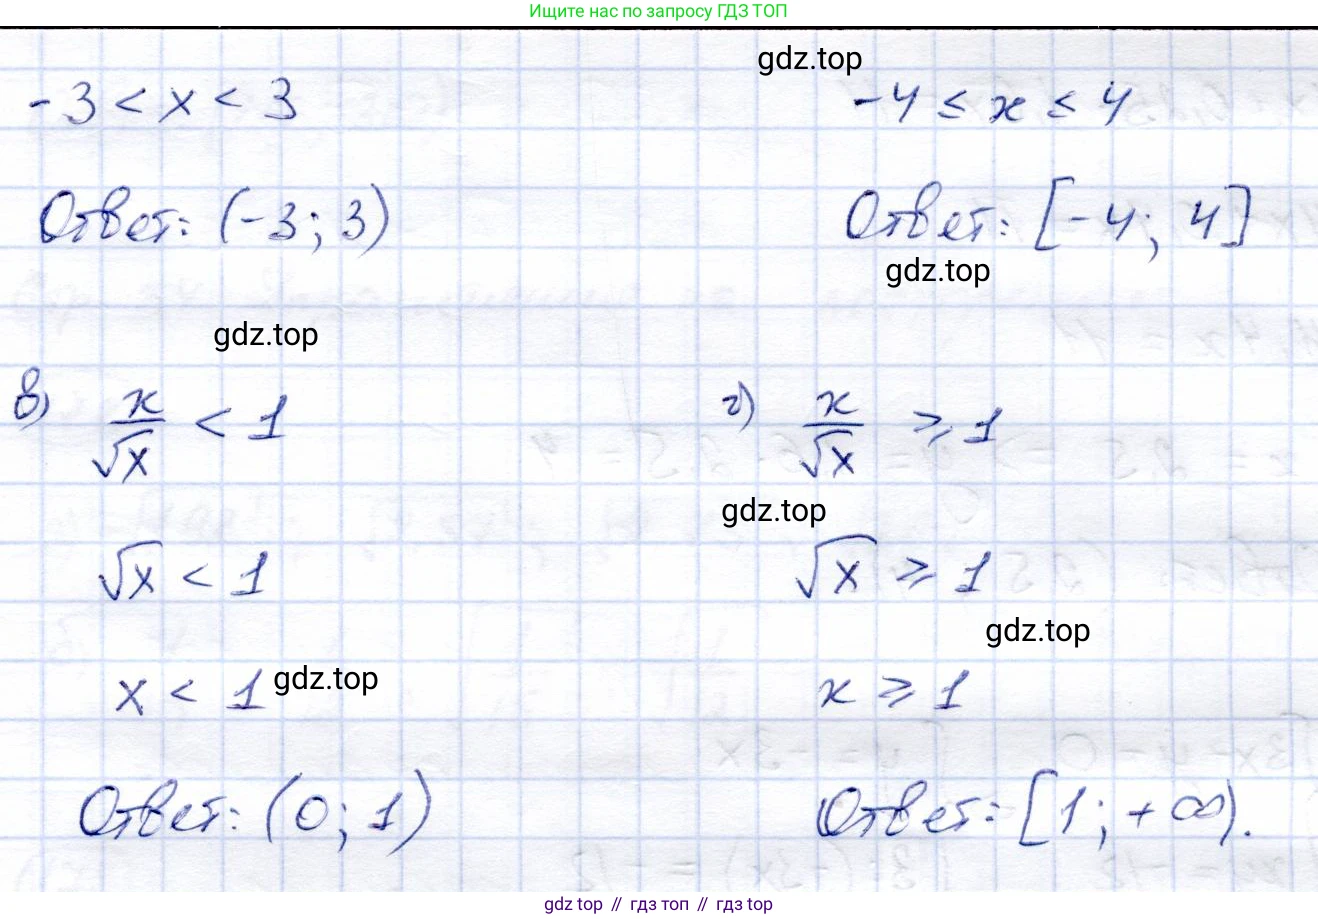 Ищите нас по запросу ГДЗ ТОП
gdz.top
-3 < x < 3
-4 ≤ x ≤ 4
Ответ: (-3; 3)
Ответ: [-4; 4]
gdz.top
gdz.top
в) x/√x < 1
г) x/√x ⩾ 1
gdz.top
√x < 1
√x ⩾ 1
gdz.top
x < 1
gdz.top
x ⩾ 1
Ответ: (0; 1)
Ответ: [1; +∞).
gdz.top // гдз топ // гдз.top